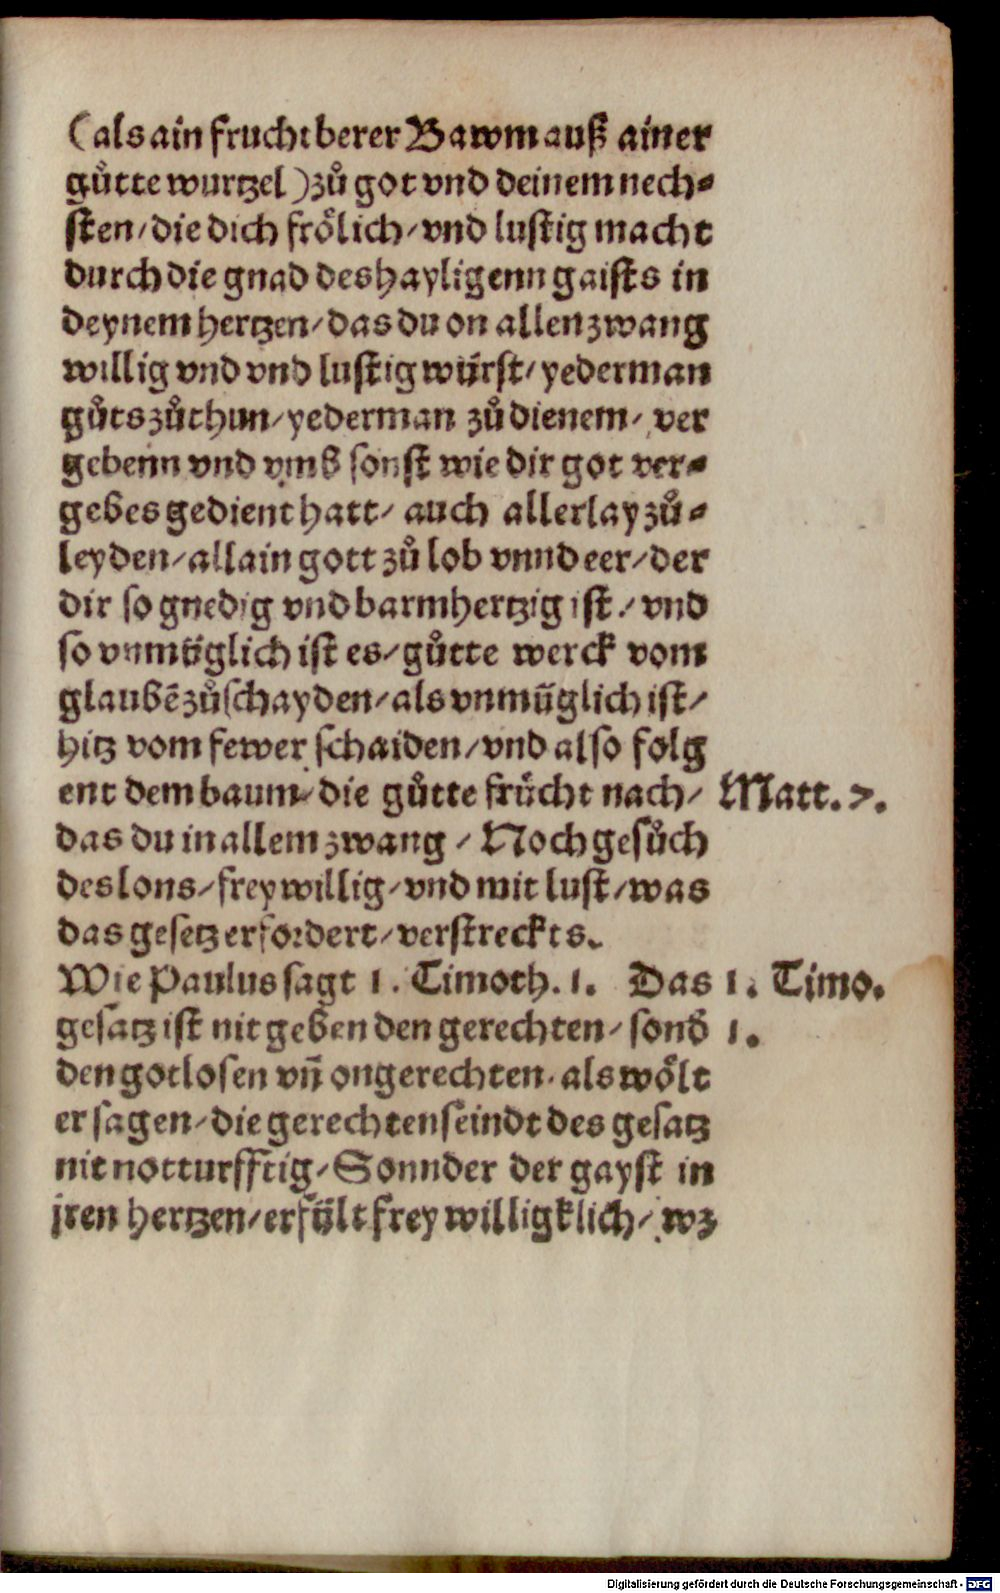 (als ain fruchtberer Bawm auß ainer
gůtte wurtzel) zů got vnd deinem nech⸗
sten/ die dich frölich/ vnd lustig macht
durch die gnad des hayligenn gaists in
deynem hertzen/ das du on allen zwang
willig vnd vnd lustig würst/ yederman
gůts zůthun/ yederman zů dienem/ ver
gebenn vnd vmb sonst wie dir got ver⸗
gebes gedient hatt/ auch allerlay zů⸗
leyden/ allain gott zů lob vnnd eer/ der
dir so gnedig vnd barmhertzig ist/ vnd
so vnmüglich ist es/ gůtte werck vom
glaubē zůschayden/ als vnmüglich ist/
hitz vom fewer schaiden/ vnd also folg
ent dem baum/ die gůtte frücht nach/ Matt. 7.
das du in allem zwang / Noch gesůch
des lons/ frey willig/ vnd mit lust/ was
das gesetz erfordert/ verstreckts.
Wie Paulus sagt 1. Timoth. 1. Das 1. Timo.
gesatz ist nit geben den gerechten/ sond̕ 1.
den gotlosen vn̄ ongerechten. als wölt
er sagen/ die gerechten seindt des gesatz
nit notturfftig/ Sonnder der gayst in
jren hertzen/ erfült frey willigklich/ wz
Digitalisierung gefördert durch die Deutsche Forschungsgemeinschaft - DFG